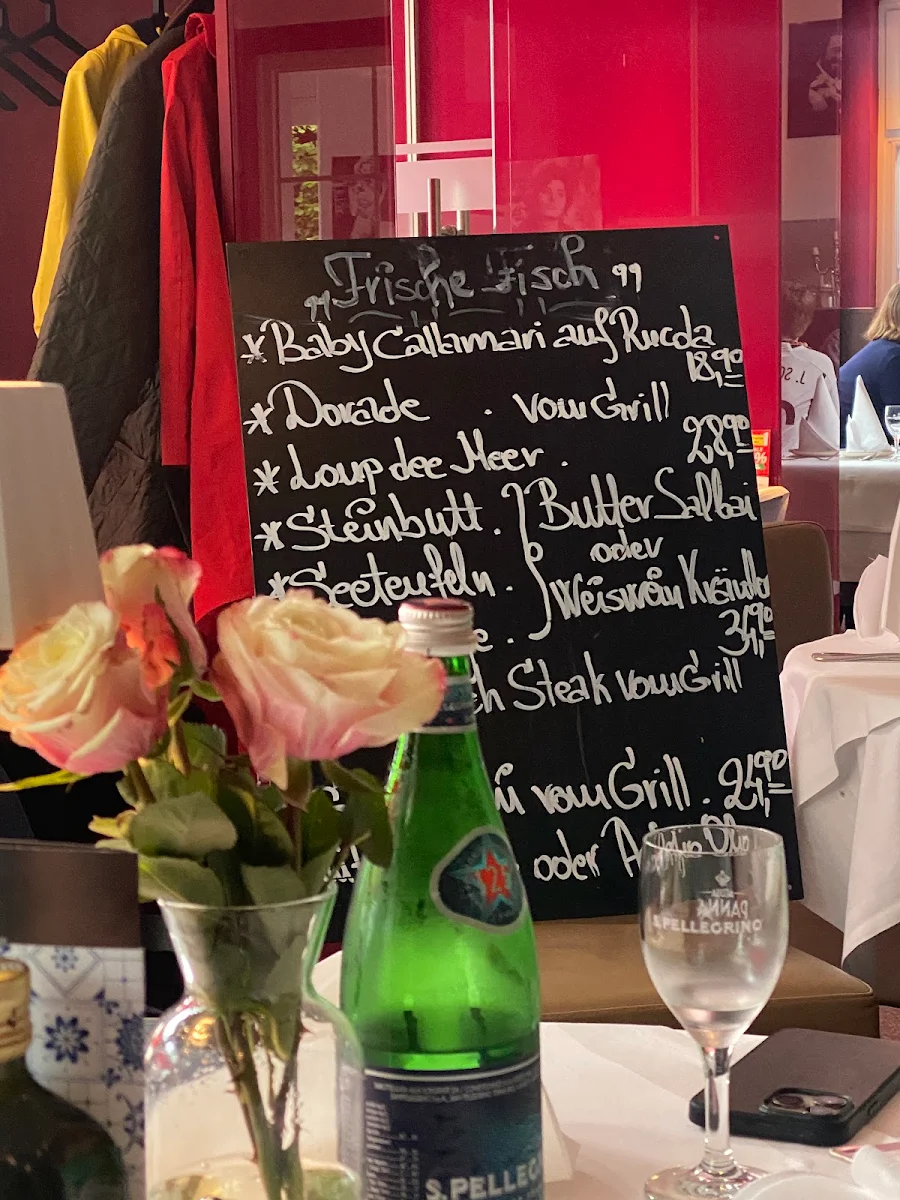 „Frische Fisch"
* Baby Callamari auf Rucola
18,90
* Dorade . vom Grill
28,90
* Loup dee Meer .
* Steinbutt . } Butter Salbai
oder
* Seeteufeln . Weiswein Kräuter
e .
ch Steak vom Grill
vom Grill . 24,90
oder
PANNA
S.PELLEGRINO
S.PELLEG